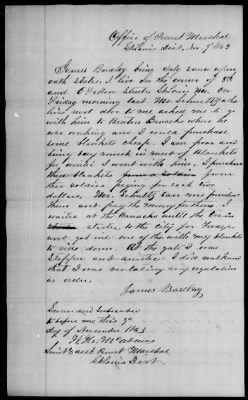 Office of Provost Marshal
St Louis Dist, Nov 9th 1863
James Barclay being duly sworn upon
oath states. I live on the corner of 8th
and O'Fallon Streets St Louis Mo. On
Friday morning last Mr. Schmidt who
lives next door to me asked me to go
with him to Benton Barracks where he
was working and I could purchase
some blankets cheap. I am poor and
being very much in need of blankets
for winter I went with him. I purchased
three blankets from a soldier from
two soldiers paying for each two
dollars. Mr. Schmidt saw me purchase
them and pay the money for them. I
waited at the Barracks until the train
started to the City for forage
and got into one of the with my blankets
to ride down. At the gate I was
stopped and arrested. I did not know
that I was violating any regulation
or order.
James Barclay
Sworn and subscribed
to before me this 9th
day of November 1863
H. H. McAdams
Asst Provt Marshal
St Louis Dist.